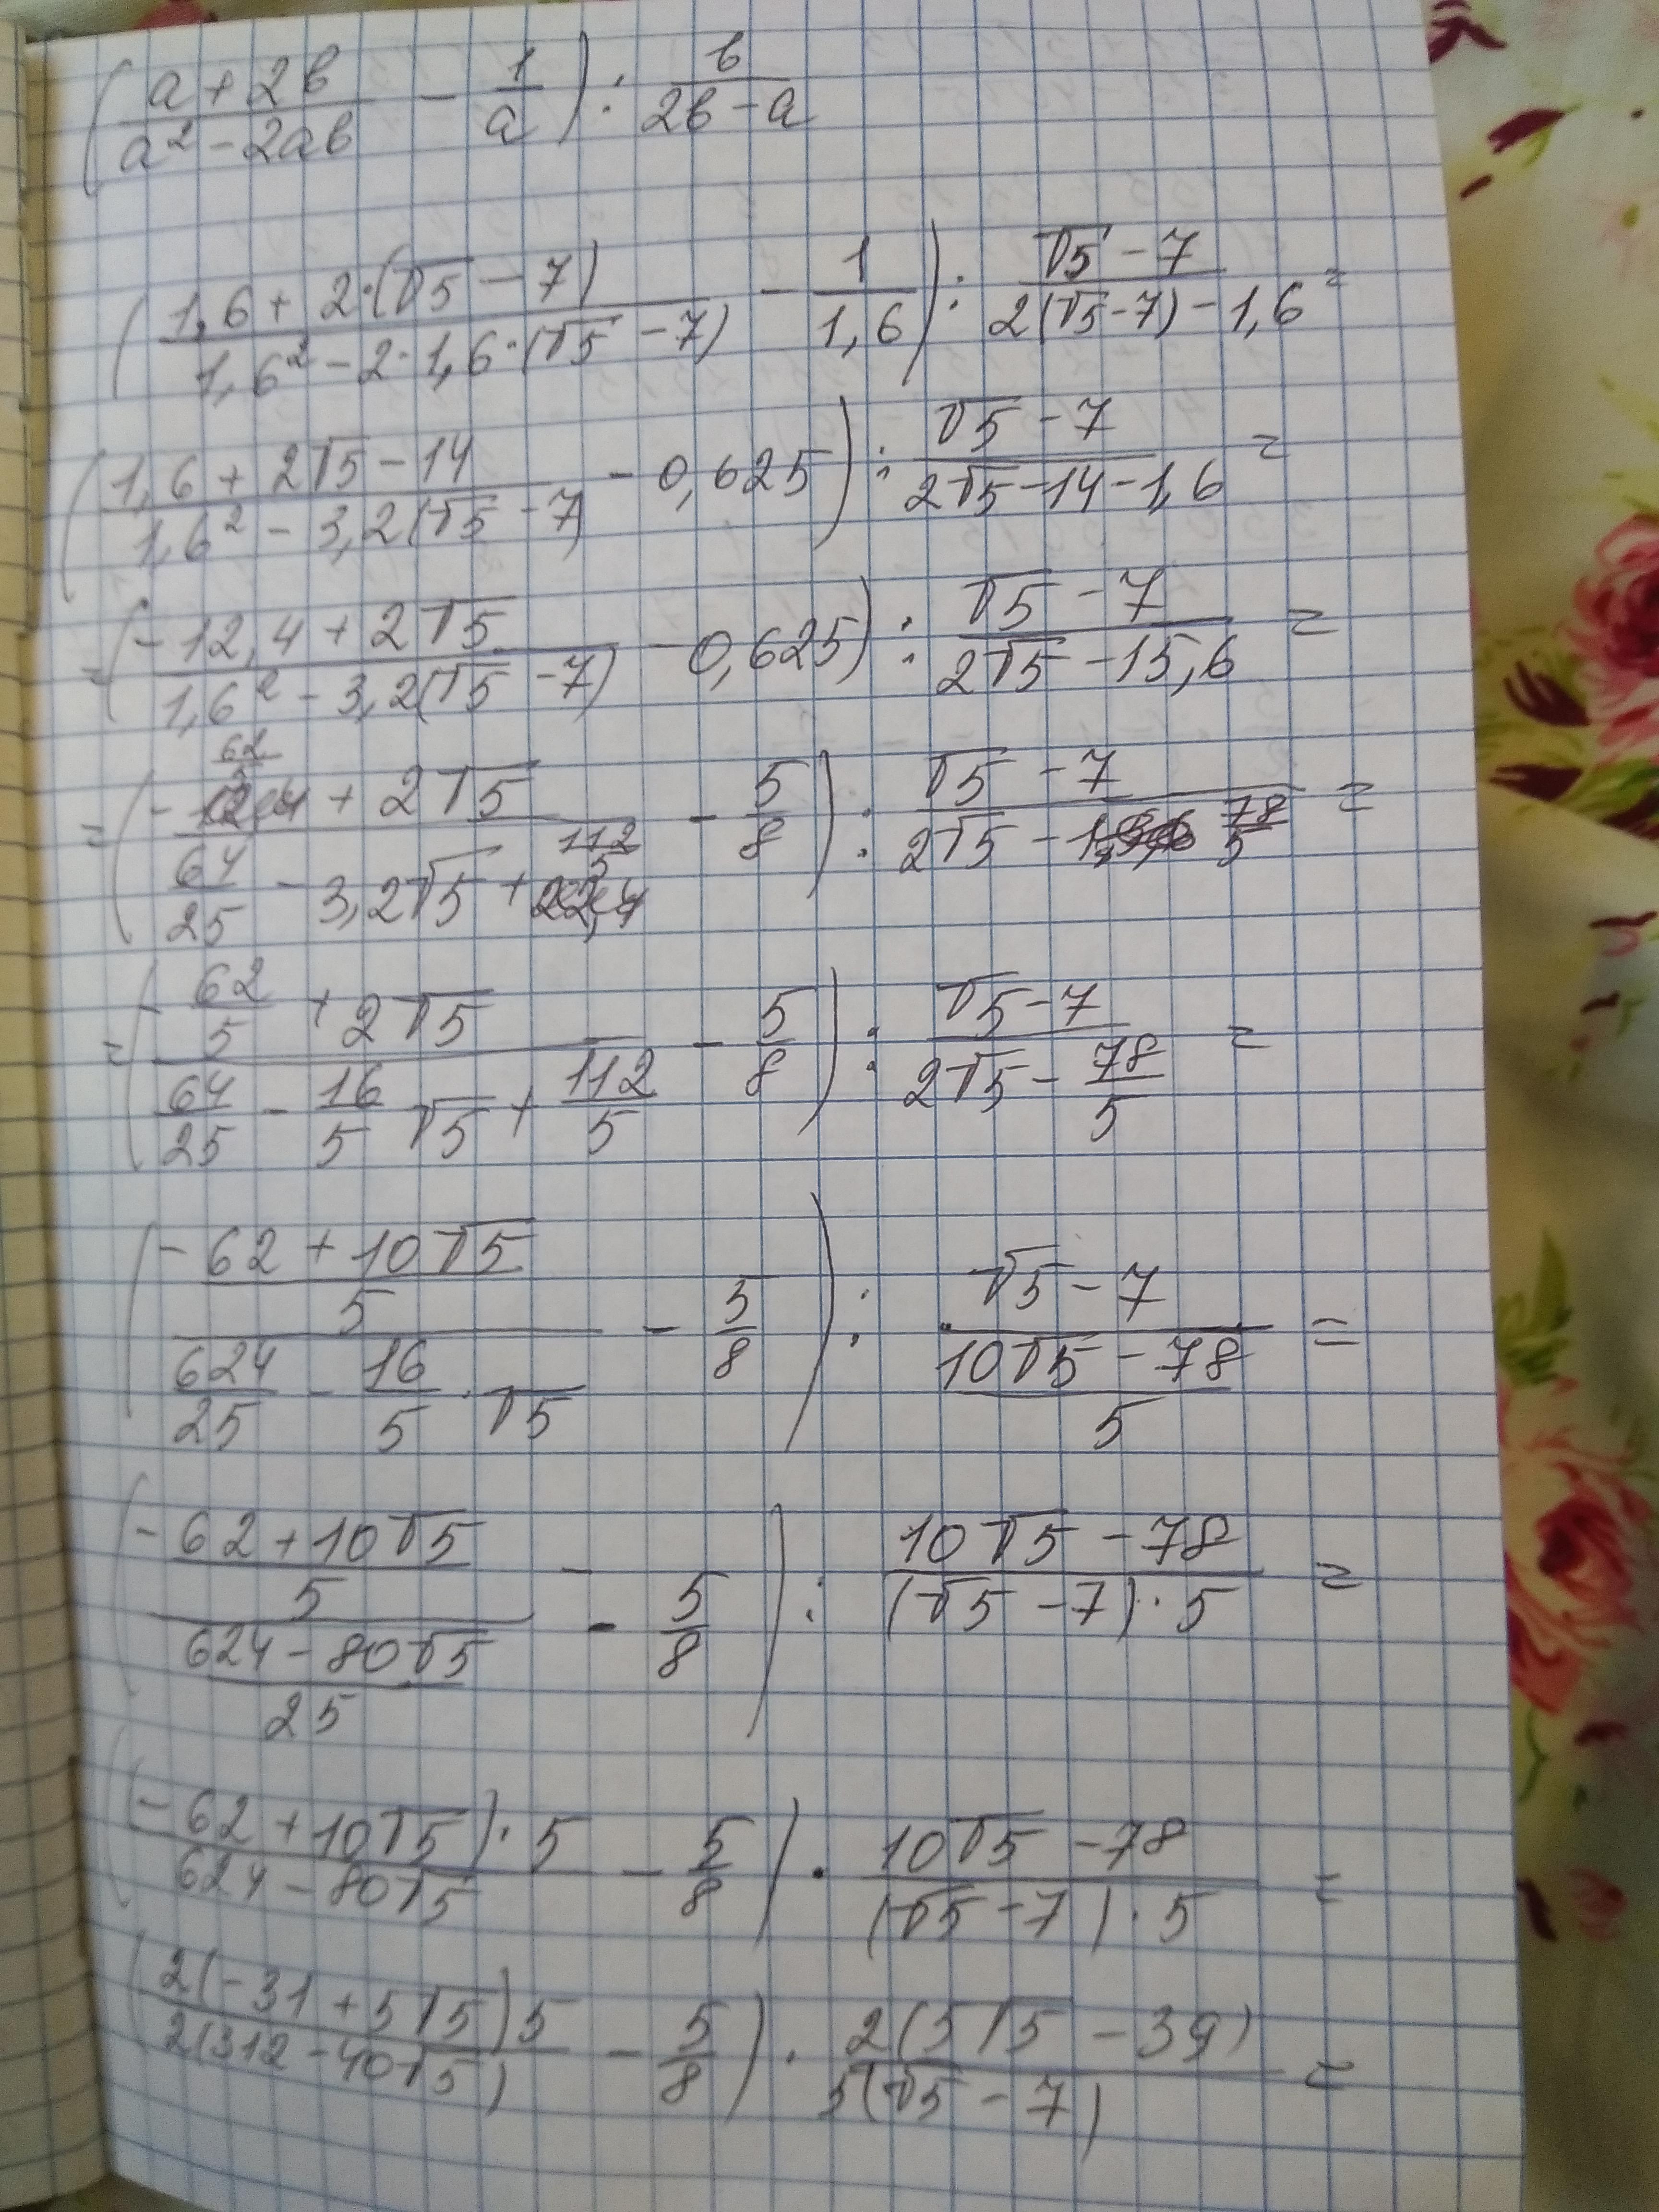 (a+2b / a²-2ab - 1/a) : b / 2b-a
(1,6 + 2·(√5 - 7) / 1,6² - 2·1,6·(√5 - 7) - 1/1,6) : √5 - 7 / 2(√5-7) - 1,6 =
(1,6 + 2√5 - 14 / 1,6² - 3,2(√5 - 7) - 0,625) : √5 - 7 / 2√5 - 14 - 1,6 =
= (-12,4 + 2√5 / 1,6² - 3,2(√5 - 7) - 0,625) : √5 - 7 / 2√5 - 15,6 =
= (- 62/5 + 2√5 / 64/25 - 3,2√5 + 112/5 - 5/8) : √5 - 7 / 2√5 - 78/5 =
= (- 62/5 + 2√5 / 64/25 - 16/5 √5 + 112/5 - 5/8) : √5-7 / 2√5 - 78/5 =
(- 62 + 10√5 / 5 / 624/25 - 16/5 · √5 - 5/8) : √5 - 7 / 10√5 - 78 / 5 =
(- 62 + 10√5 / 5 / 624 - 80√5 / 25 - 5/8) : 10√5 - 78 / (√5 - 7)·5 =
((- 62 + 10√5)·5 / 624 - 80√5 - 5/8) · 10√5 - 78 / (√5 - 7)·5 =
(2(-31 + 5√5)5 / 2(312 - 40√5) - 5/8) · 2(5√5 - 39) / 5(√5 - 7) =